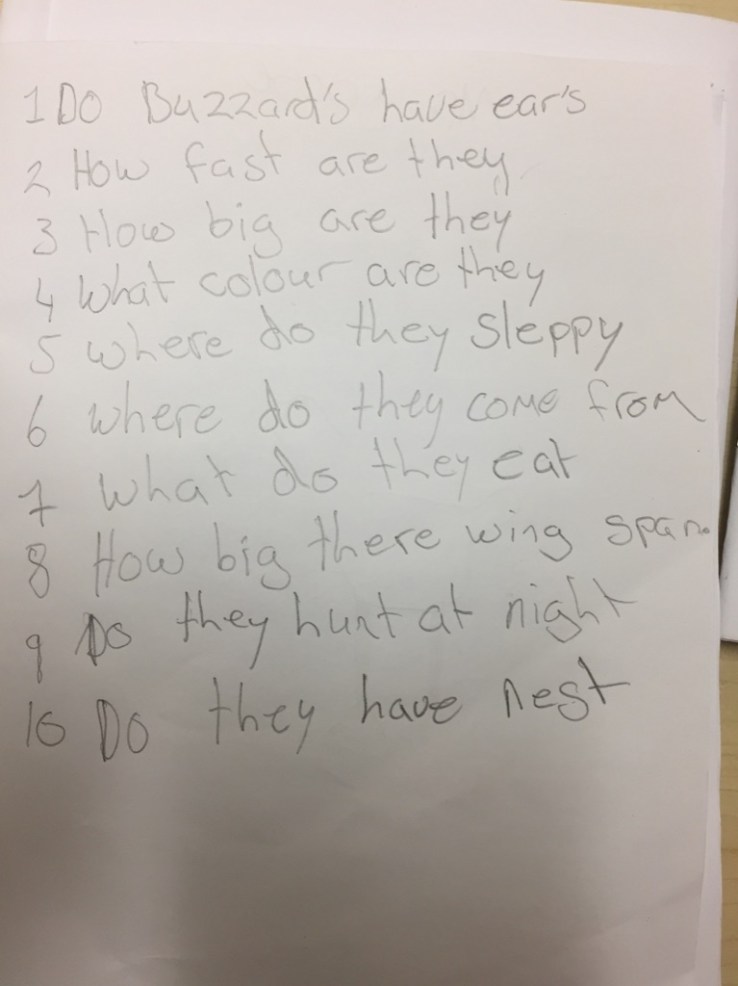 1 Do Buzzard's have ear's
2 How fast are they
3 How big are they
4 What colour are they
5 where do they sleppy
6 where do they come from
7 what do they eat
8 How big there wing span.
9 Do they hunt at night
10 Do they have nest